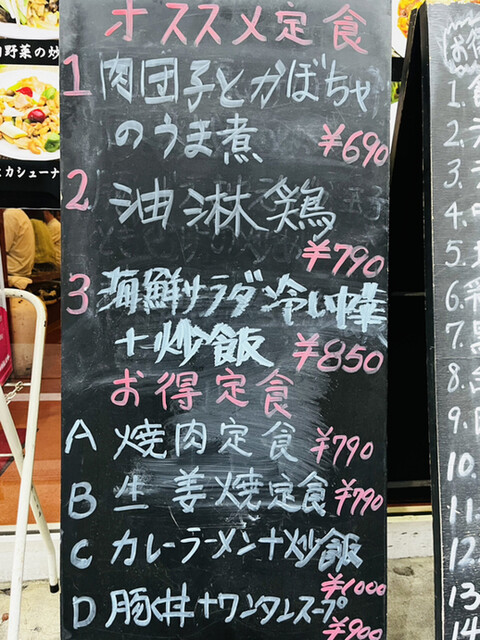 オススメ定食
1 肉団子とかぼちゃ
のうま煮 ¥690
2 油淋鶏
¥790
3 海鮮サラダ冷し中華
+炒飯 ¥850
お得定食
A 焼肉定食 ¥790
B 生姜焼定食 ¥790
C カレーラーメン+炒飯
¥1000
D 豚丼+ワンタンスープ
¥900
野菜の炒
カシューナ
お得
1.
2.
3.
4.
5.
6.
7.
8.
9.
10.
11.
12.
13.
14